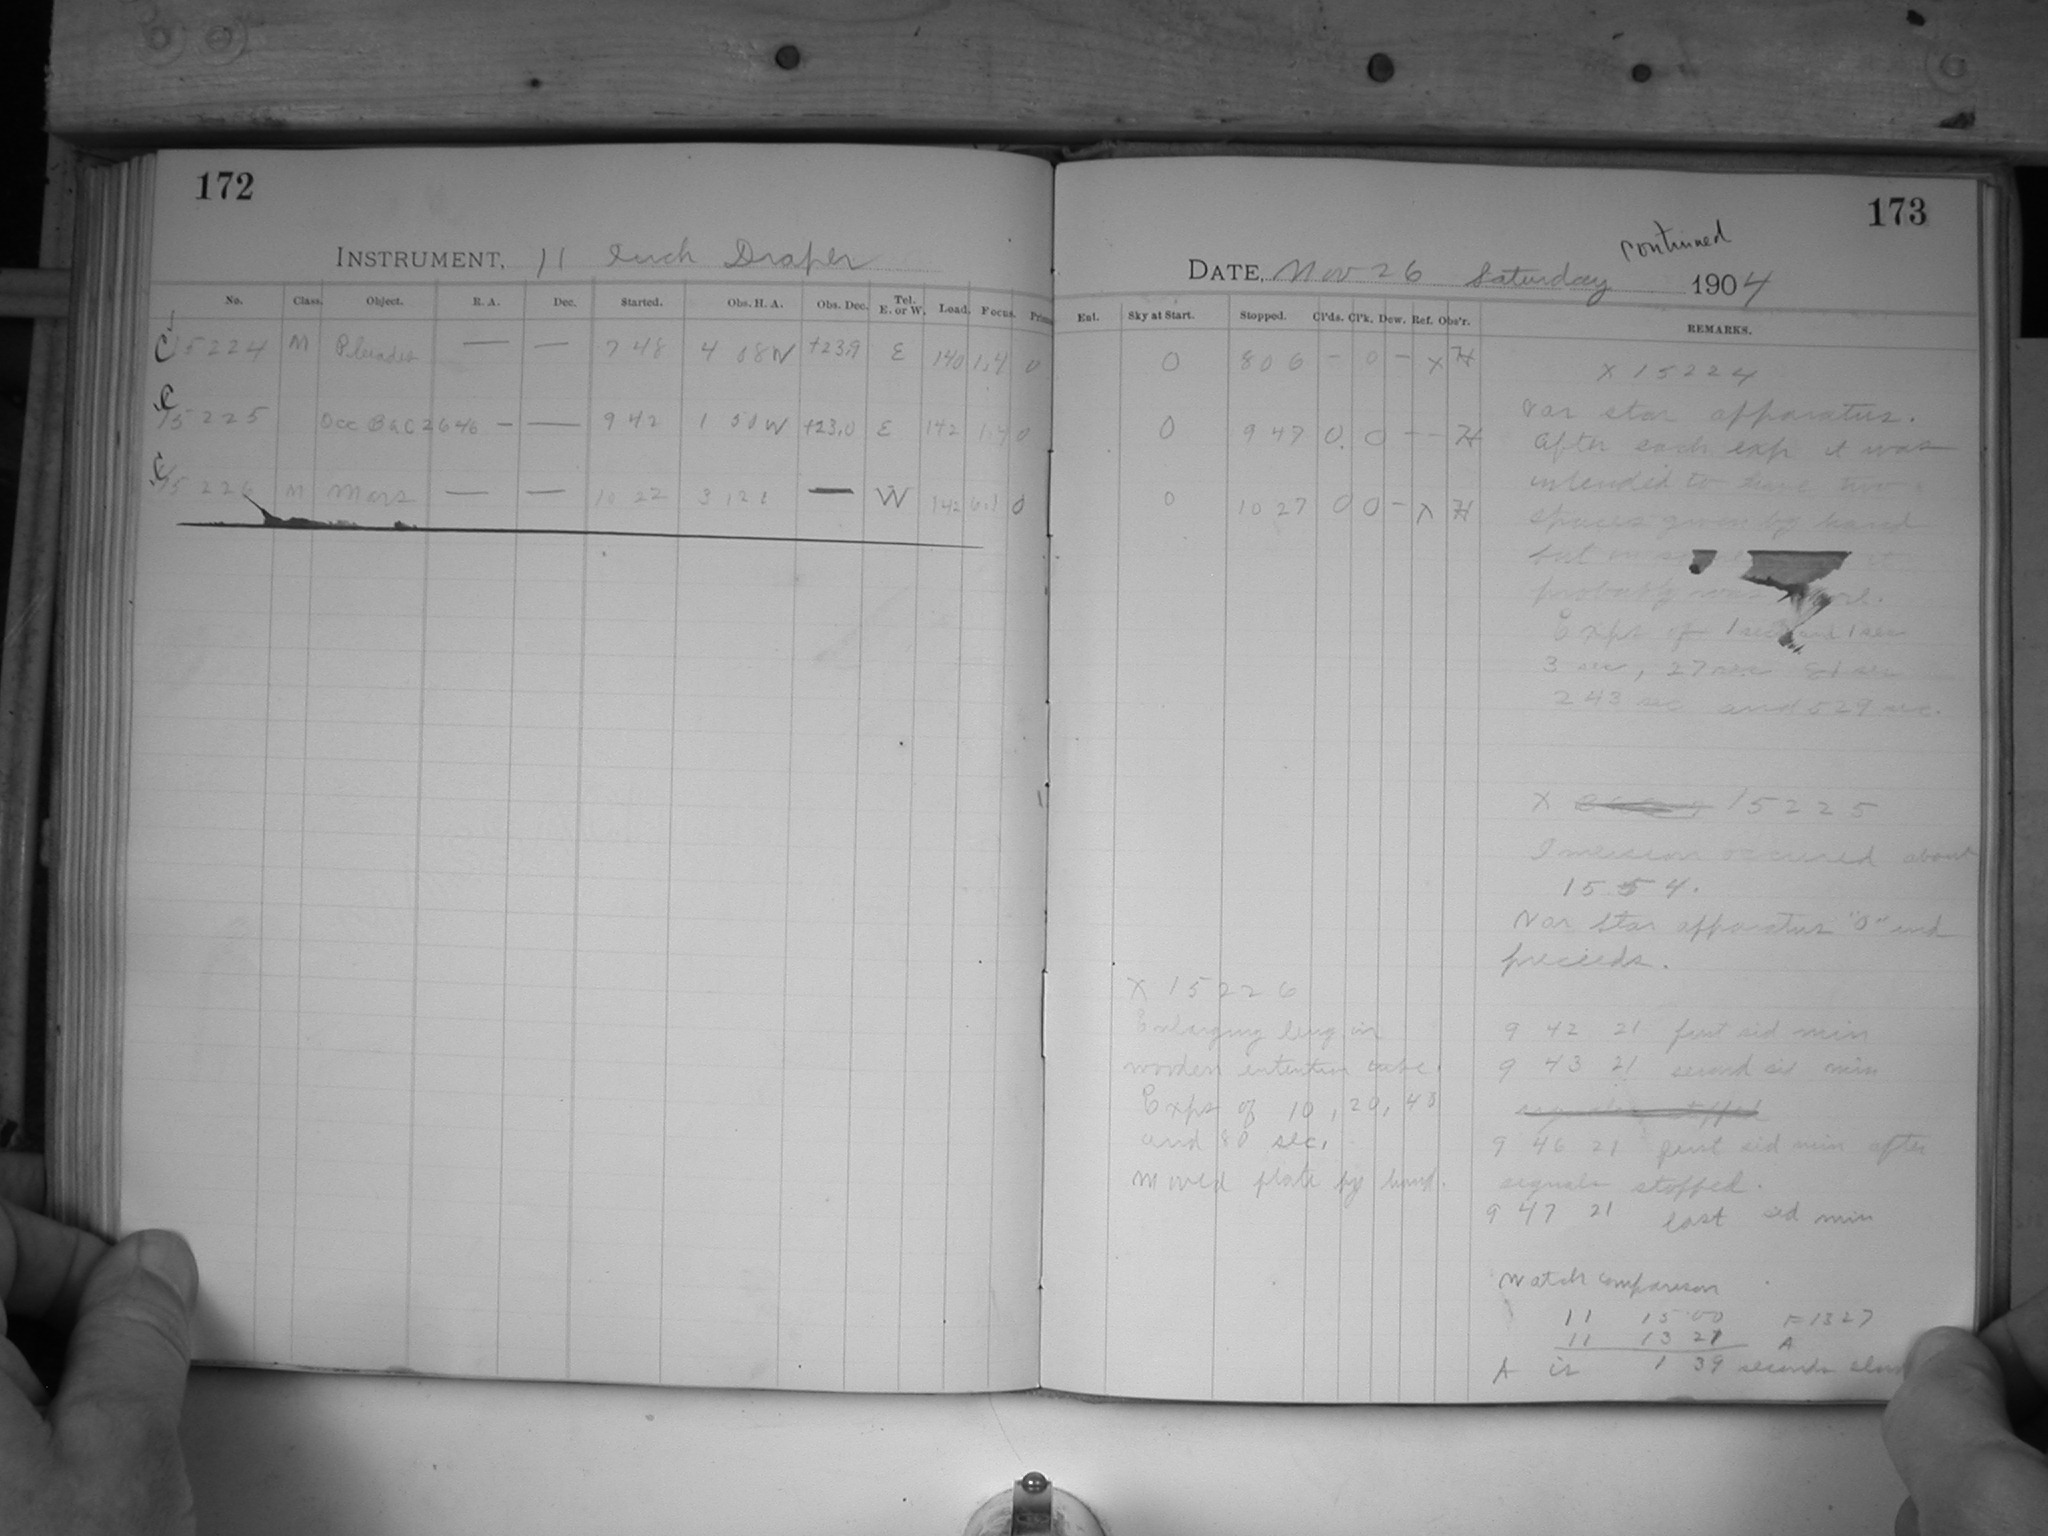 172
INSTRUMENT, 11 Inch Draper
No. Class. Object. R. A. Dec. Started. Obs. H. A. Obs. Dec. Tel. E. or W. Load. Focus.
C 15224 M Pleiades — — 7 48 4 08 W +23.9 E 140 1.4 0
C 15225 Occ BAC 2646 — — 9 42 W +23.0 E 142 1.4 0
C 15226 M Mars — — 10 22 3 12 — W 142 0
173
continued
DATE, Nov 26 Saturday 1904
Enl. Sky at Start. Stopped. Cl'ds. Cl'k. Dew. Ref. Obs'r. REMARKS.
0 8 06 – 0 – x H
0 9 47 0 0 – – H
0 10 27 0 0 – x H
X 15224
Var star apparatus.
After each exp it was
intended to have two
spaces given by hand
but in it
probably was
Exps of 1 sec and 1 sec
3 sec, 27 sec 81 sec
243 sec and 529 sec.
X 15225
Imersion occured about
15 5 4.
Var Star apparatus "0" end
preceeds.
9 42 21 first sid min
9 43 21 second sid min
9 46 21 first sid min after
signals stopped.
9 47 21 last sid min
Watch comparison
11 15 00 F 1327
11 13 21 A
A is 1 39 seconds slow
X 15226
Enlarging lens in
wooden extention tube.
Exps of 10, 20, 40
and 80 sec.
Moved plate by hand.